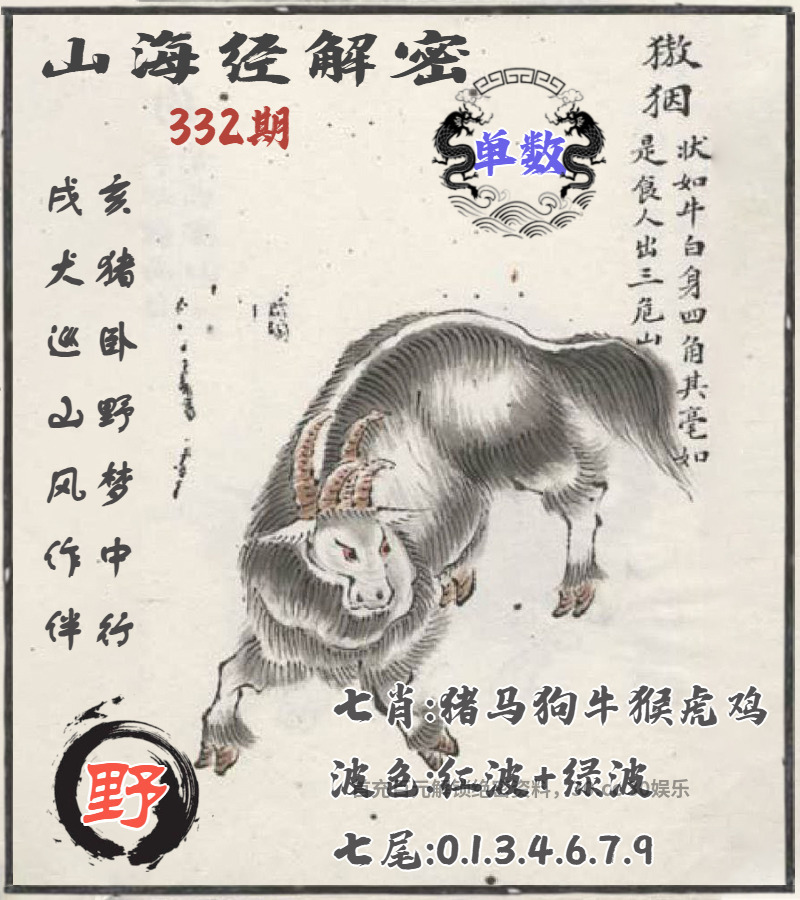 山海经解密
332期
单数
獓
𤝱
状如牛白身四角其毫如
是食人出三危山
亥猪卧野梦中行
戌犬巡山风作伴
野
七肖:猪马狗牛猴虎鸡
波色:红波+绿波
七尾:0.1.3.4.6.7.9